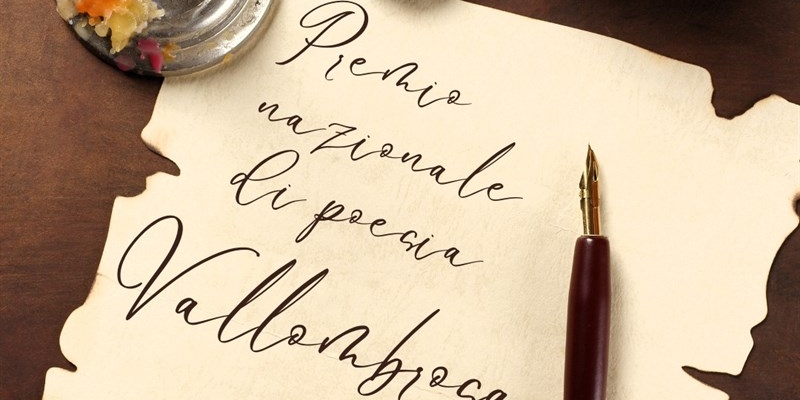 Premio
nazionale
di poesia
Vallombrosa